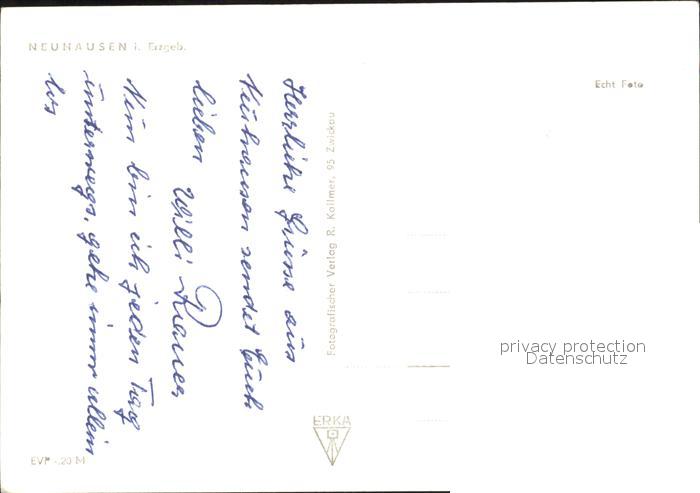 NEUHAUSEN i. Erzgeb.
Echt Foto
Herzliche Grüsse aus
Neuhausen sendet Euch
lieben Willi
Nun bin ich jeden Tag
unterwegs, gehe immer allein
los
Fotografischer Verlag R. Kollmer, 95 Zwickau
ERKA
EVP -.20 M
privacy protection
Datenschutz